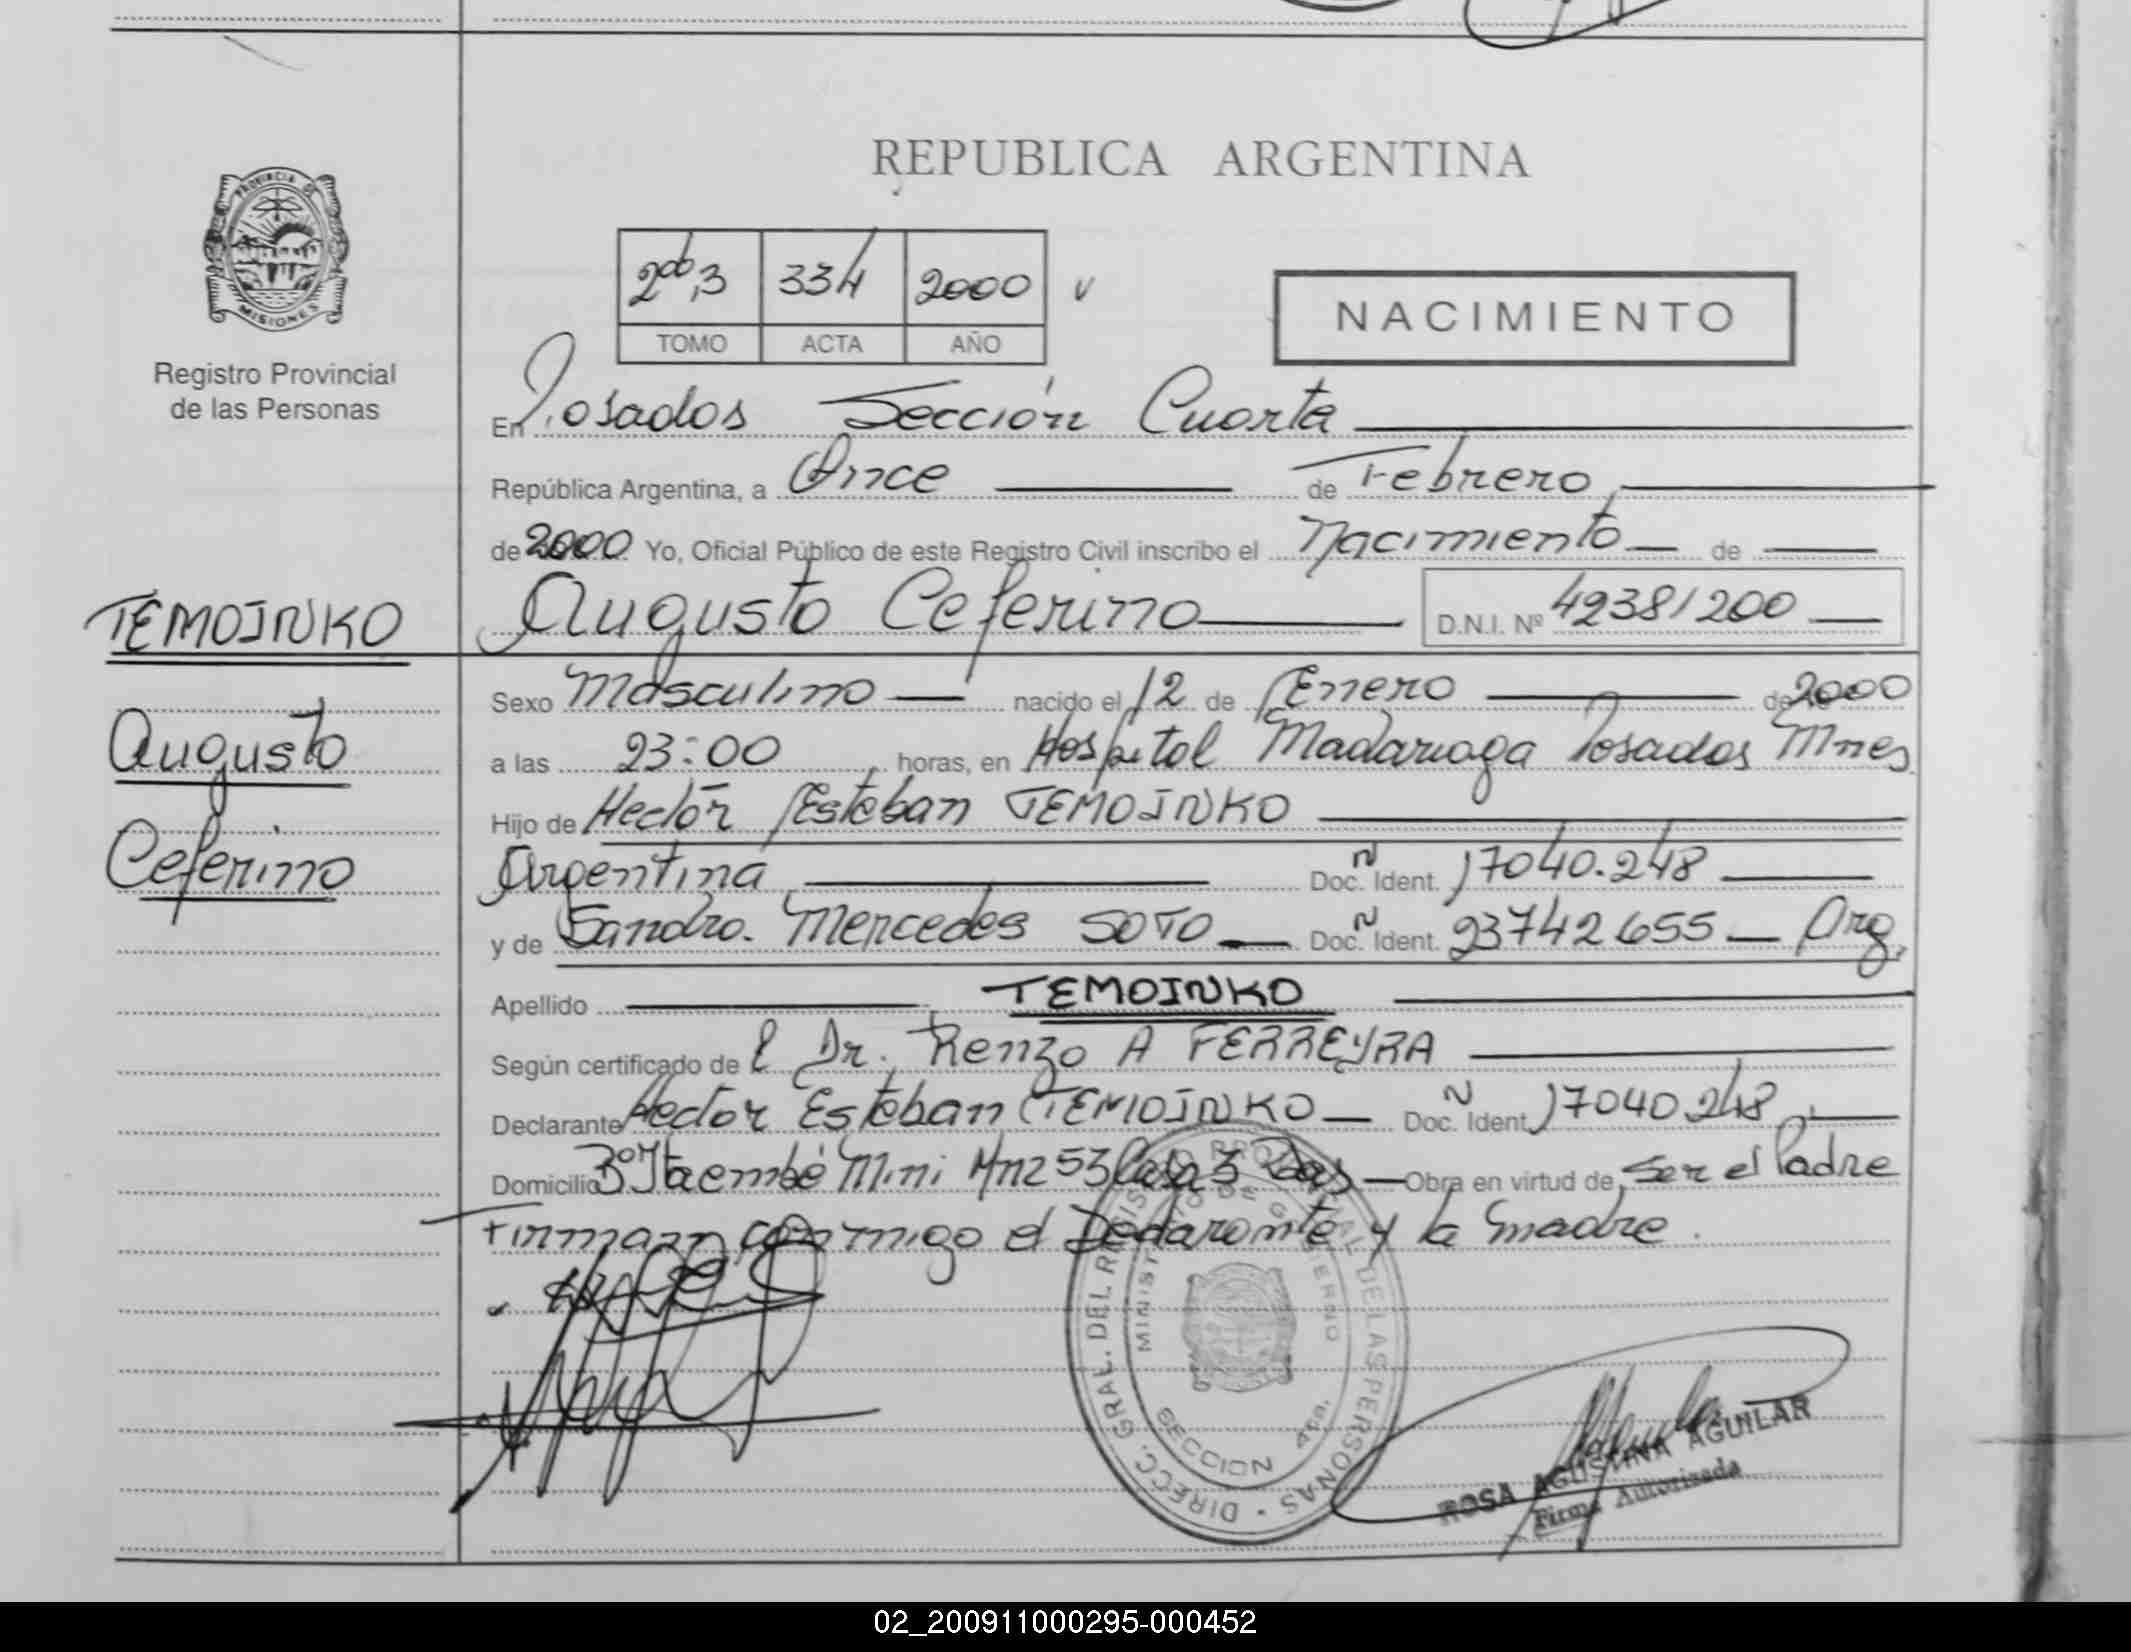 REPUBLICA ARGENTINA
PROVINCIA DE
MISIONES
Registro Provincial
de las Personas
2do,3 334 2000
TOMO ACTA AÑO
NACIMIENTO
En Posadas Sección Cuarta
República Argentina, a Once de Febrero
de 2000 Yo, Oficial Público de este Registro Civil inscribo el Nacimiento de
TEMOINKO
Augusto Ceferino D.N.I. Nº 42381200
Sexo Masculino nacido el 12 de Enero de 2000
Augusto
a las 23:00 horas, en Hospital Madariaga Posadas Mnes
Hijo de Hector Esteban TEMOINKO
Ceferino
Argentina Doc. Ident. N 17040.248
y de Sandra Mercedes SOTO Doc. Ident. N 23742655 Arg.
Apellido TEMOINKO
Según certificado de l Dr. Renzo A FERREYRA
Declarante Hector Esteban TEMOINKO Doc. Ident. N 17040.248
Domicilio Bº Itaembé Mini Mnz 53 Casa 3 Pdas Obra en virtud de Ser el Padre
Firman conmigo el Declarante y la madre.
DIRECC. GRAL. DEL REGISTRO PROVINCIAL DE LAS PERSONAS
MINISTERIO DE GOBIERNO
SECCION 4ta.
ROSA AGUSTINA AGUILAR
Firma Autorizada
02_200911000295-000452